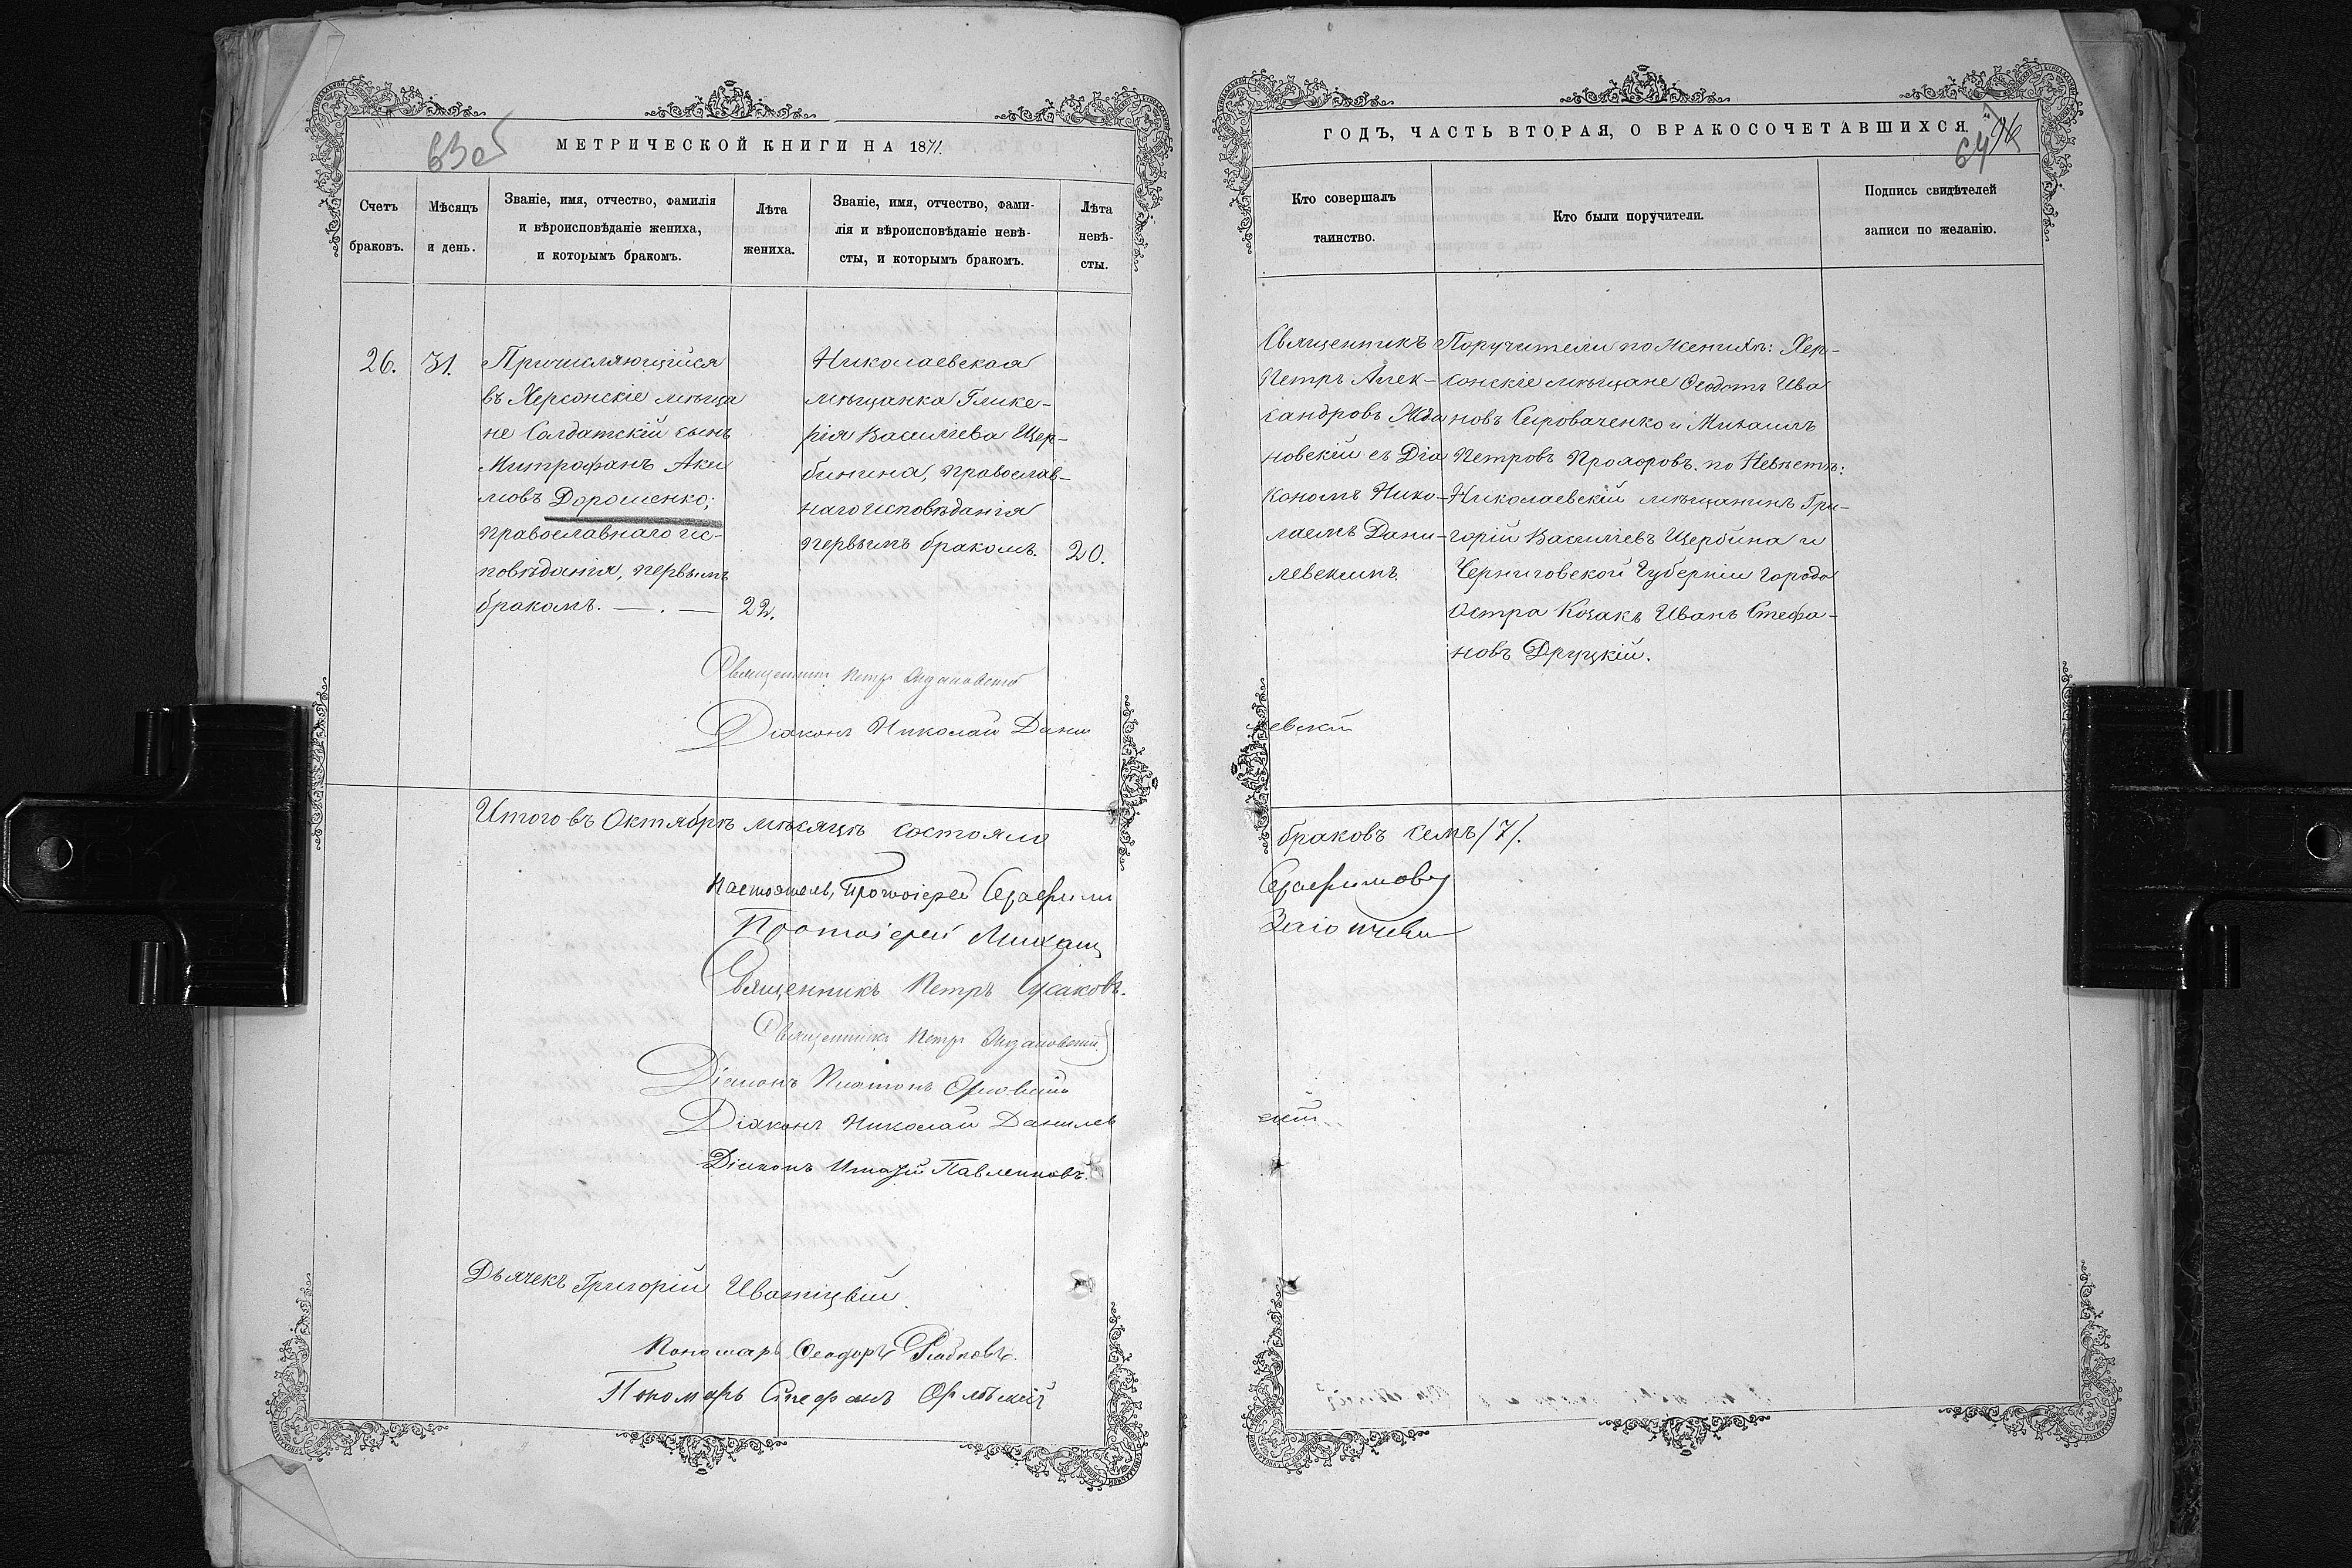 63об
МЕТРИЧЕСКОЙ КНИГИ НА 1871.
Счетъ
браковъ.
Мѣсяцъ
и день.
Званіе, имя, отчество, фамилія
и вѣроисповѣданіе жениха,
и которымъ бракомъ.
Лѣта
жениха.
Званіе, имя, отчество, фами-
лія и вѣроисповѣданіе невѣ-
сты, и которымъ бракомъ.
Лѣта
невѣ-
сты.
26.
31.
Причисляющійся
въ Херсонскіе мѣща
не Солдатскій сынъ
Митрофанъ Аки
мовъ Дорошенко;
православнаго ис-
повѣданія, первымъ
бракомъ. — . —
22.
Николаевская
мѣщанка Глике-
рія Василіева Щер-
бинина, православ-
наго исповѣданія
первымъ бракомъ.
20.
Священникъ Петръ Ждановскій
Діаконъ Николай Дани
Итого въ Октябрѣ мѣсяцѣ состояло
Настоятель, Протоіерей Серафимъ
Протоіерей Михаил
Священникъ Петръ Русаковъ.
Священникъ Петръ Ждановскій
Діаконъ Платонъ Орловскій
Діаконъ Николай Данилев
Діаконъ Игнатій Павленковъ.
Дьячекъ Григорій Иваницкій
Пономарь Ѳеодоръ Рябковъ.
Пономарь Стефанъ
ГОДЪ, ЧАСТЬ ВТОРАЯ, О БРАКОСОЧЕТАВШИХСЯ
64
Кто совершалъ
таинство.
Кто были поручители.
Подпись свидѣтелей
записи по желанію.
Священникъ
Петръ Алек-
сандровъ Жда
новскій съ Діа
кономъ Нико-
лаемъ Дани-
левскимъ.
Поручители по Женихѣ: Хер-
сонскіе мѣщане Ѳеодотъ Ива
новъ Сыроваченко и Михаилъ
Петровъ Прохоровъ. по Невѣстѣ:
Николаевскій мѣщанинъ Гри-
горій Василіевъ Щербина и
Черниговской Губерніи города
Остра Козакъ Иванъ Стефа-
новъ Друцкій.
левскій
браковъ семь /7/.
Серафимовъ
скій